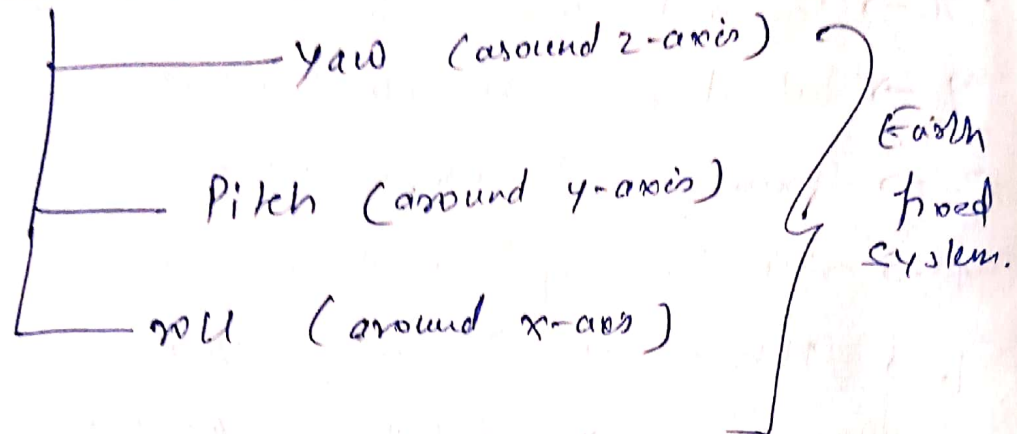 Yaw (around z-axis)
Pitch (around y-axis)
roll (around x-axis)
Earth
fixed
system.